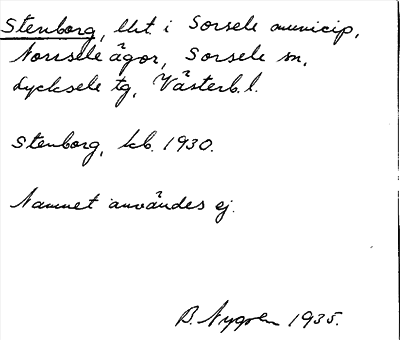 Stenborg, lht. i Sorsele municip,
Norrsele ägor, Sorsele sn,
Lycksele tg, Västerb. l.
Stenborg, kb. 1930.
Namnet användes ej.
B. Nygren 1935.